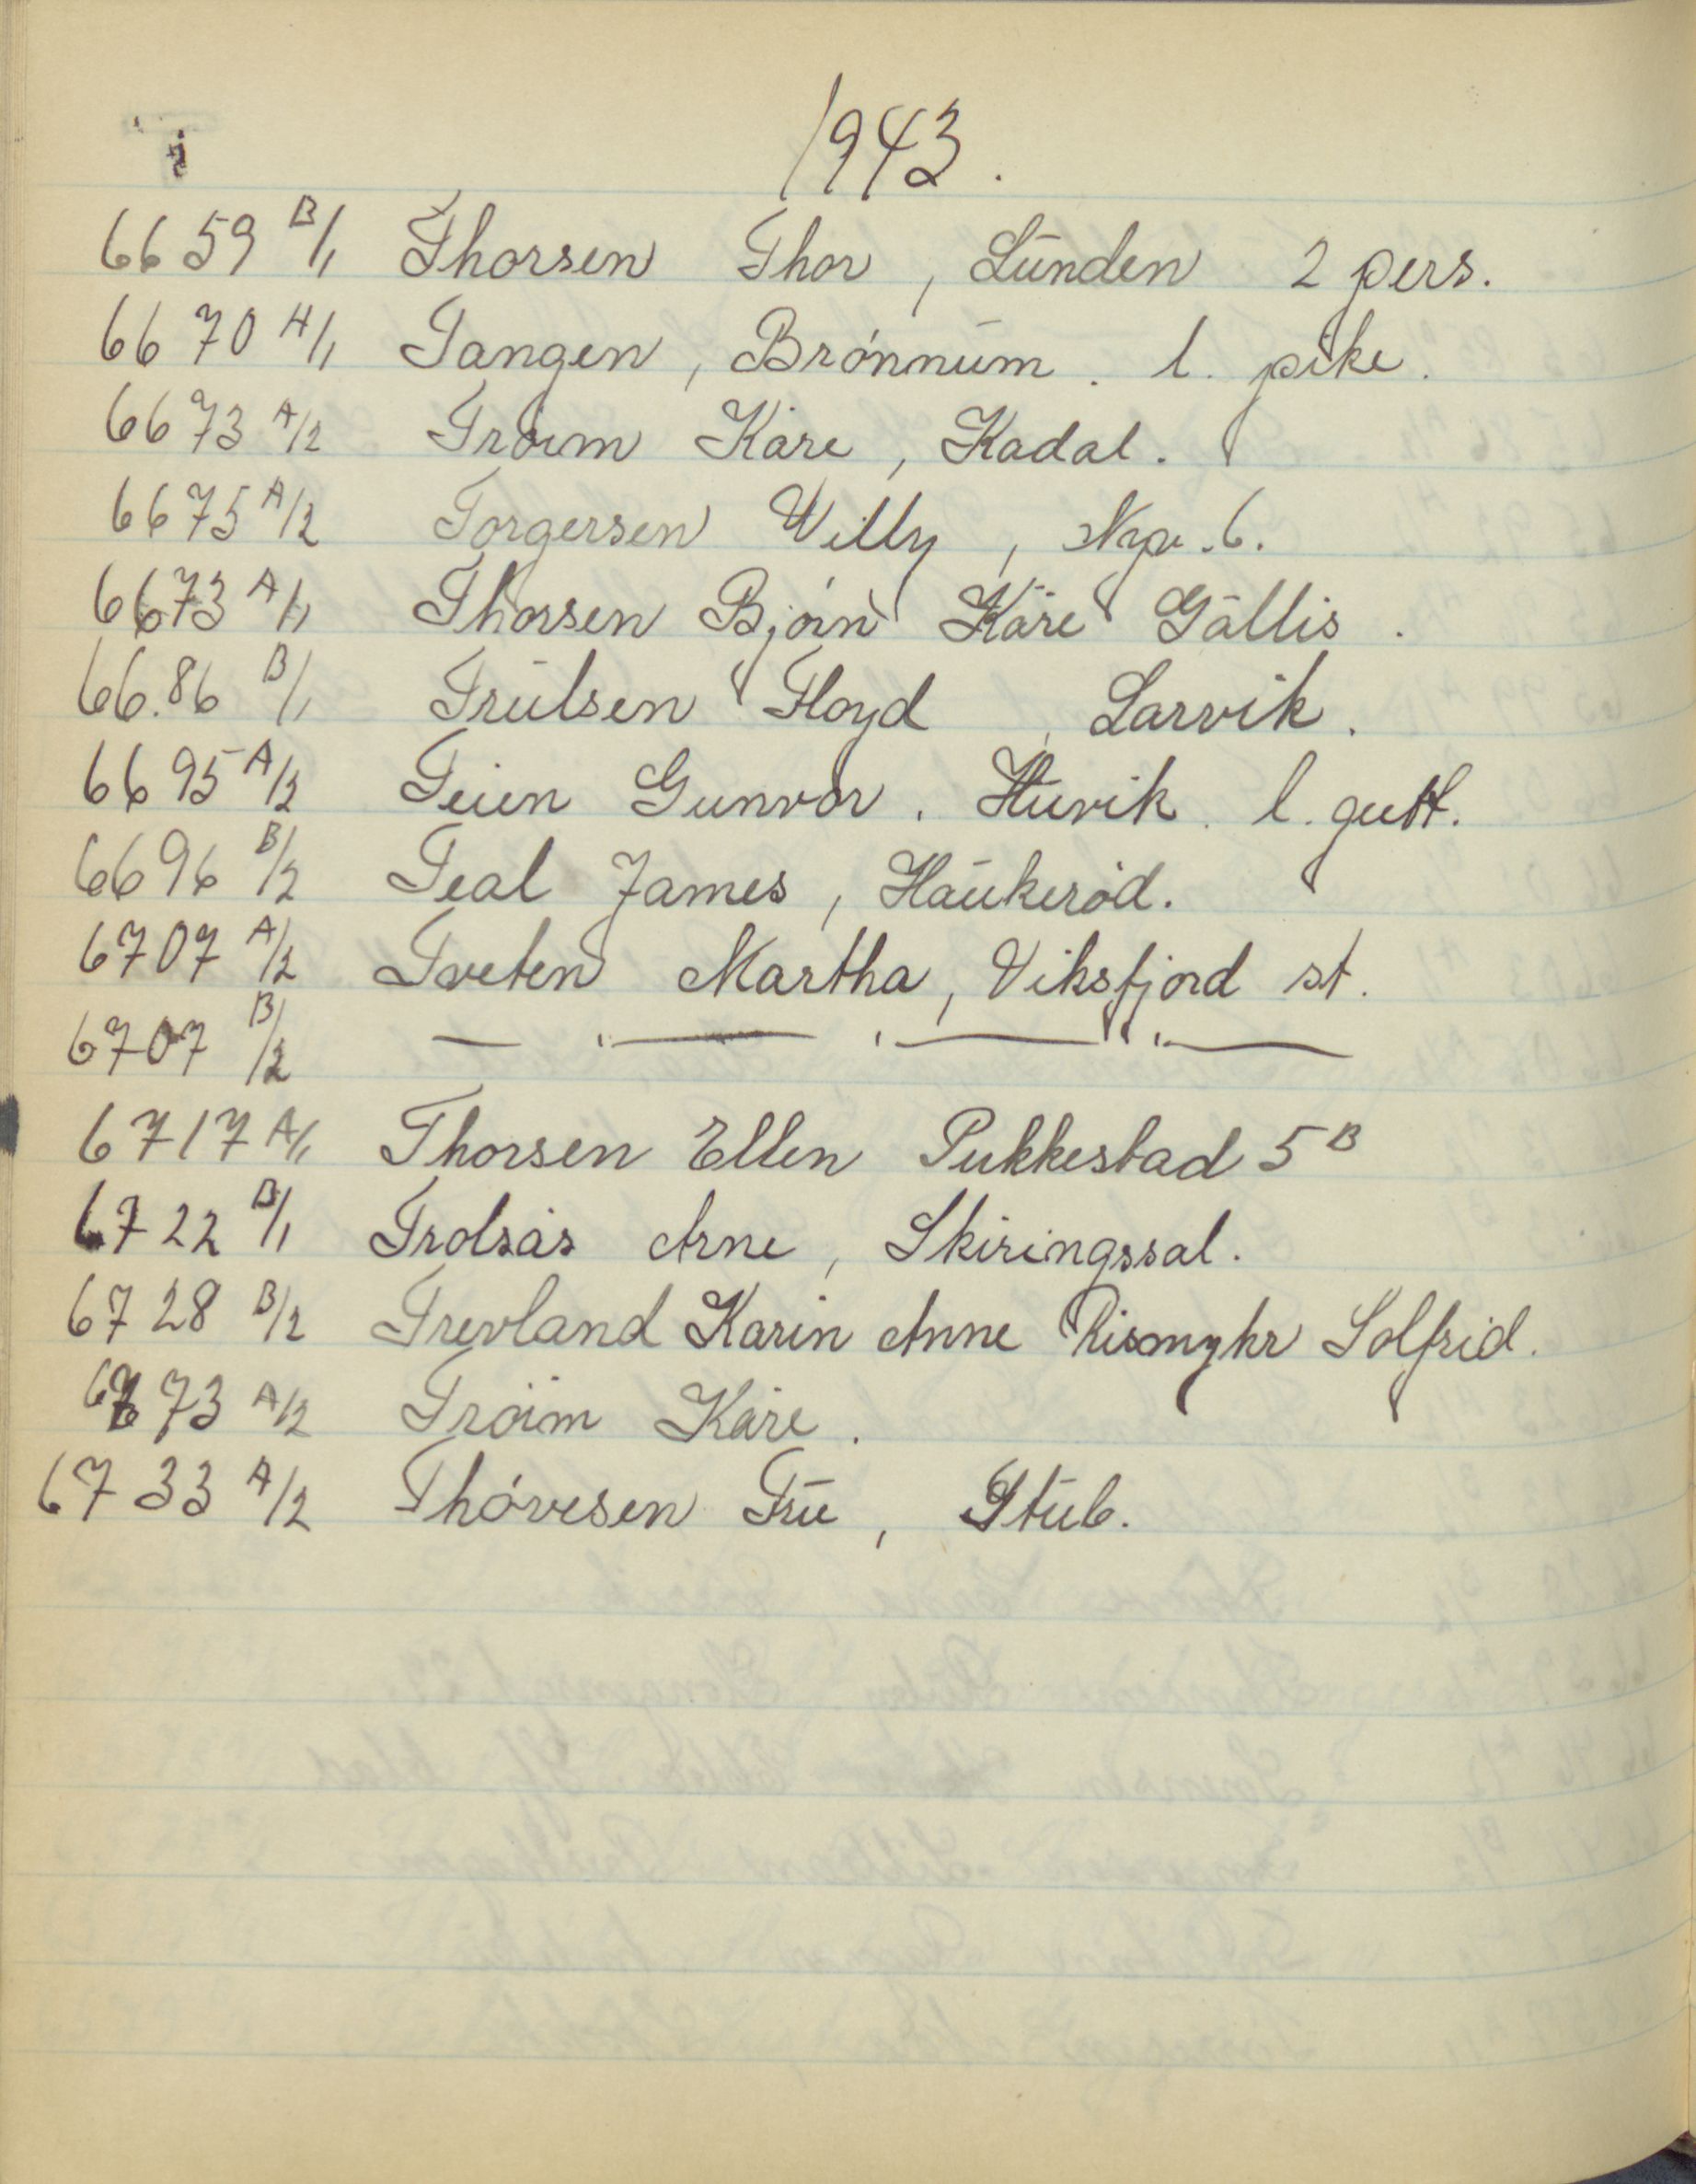 T
1943.
6659 B/1 Thorsen Thor, Lunden 2 pers.
6670 A/1 Tangen, Brónnum. l. pike.
6673 A/2 Tróim Kåre, Kadal.
6675 A/2 Torgersen Willy, Nyv. 6.
6673 A/1 Thorsen Bjórn Kåre Gallis.
66.86 B/1 Trulsen Floyd, Larvik.
6695 A/2 Teien Gunvor. Huvik. l. gutt.
6696 B/2 Teal James, Haukeród.
6707 A/2 Tveten Martha, Viksfjord st.
6707 B/2 — " — " — " —
6717 A/1 Thorsen Ellen Pukkestad 5 B
6722 B/1 Trolsås Arne, Skiringssal.
6728 B/2 Trevland Karin Anne Rismyhr Solfrid.
6673 A/2 Tróim Kåre.
6733 A/2 Thóresen Fru, Stub.